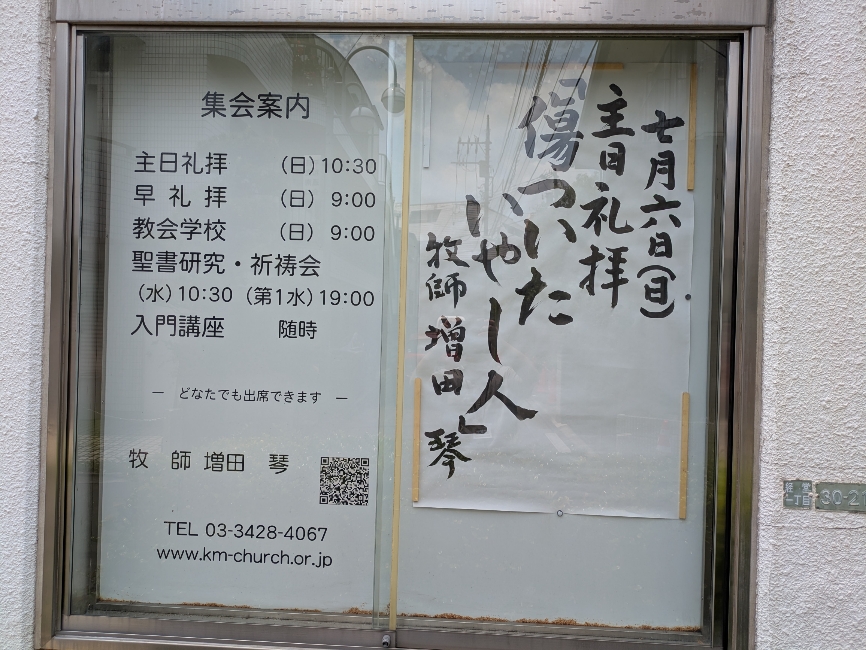 集会案内
主日礼拝 (日) 10:30
早礼拝 (日) 9:00
教会学校 (日) 9:00
聖書研究・祈祷会
(水) 10:30 (第1水) 19:00
入門講座 随時
― どなたでも出席できます ―
牧師 増田 琴
TEL 03-3428-4067
www.km-church.or.jp
七月六日(日)
主日礼拝
「傷ついた
いやし人」
牧師 増田 琴
一丁目
30-2